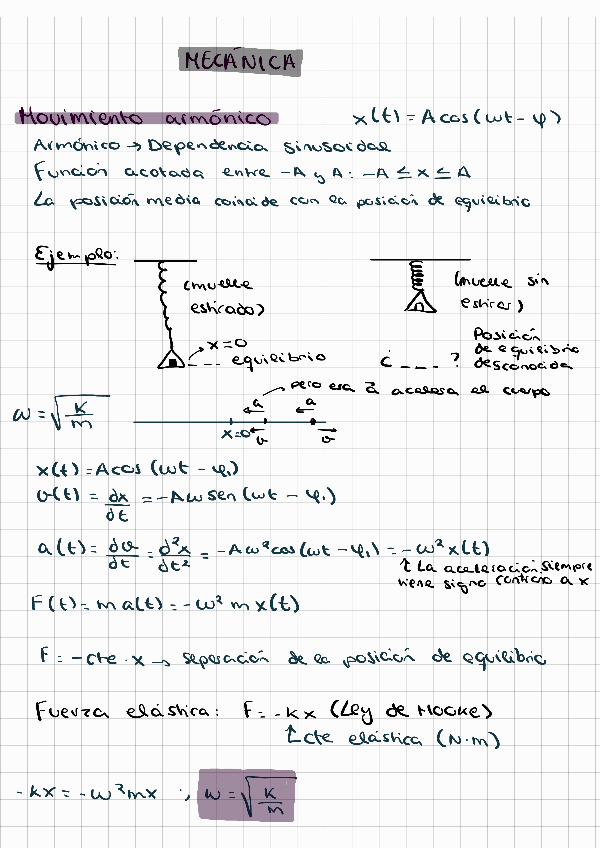 MECÁNICA
Movimiento armónico
x(t) = A cos(ωt - φ)
Armónico → Dependencia sinusoidal
Función acotada entre -A y A: -A ≤ x ≤ A
La posición media coincide con la posición de equilibrio
Ejemplo:
(muelle
estirado)
x=0
equilibrio
(muelle sin
estirar)
¿ _ _ _ ?
Posición
de equilibrio
desconocida
pero esa a⃗ acelera el cuerpo
ω = √(K/m)
a
a
x=0
v
v
x(t) = A cos (ωt - φ₁)
v(t) = dx/dt = -Aω sen (ωt - φ₁)
a(t) = dv/dt = d²x/dt² = -Aω² cos (ωt - φ₁) = -ω² x(t)
↑ La aceleración siempre
tiene signo contrario a x
F(t) = m a(t) = -ω² m x(t)
F = -cte · x → separación de la posición de equilibrio
Fuerza elástica: F = -kx (Ley de Hooke)
↑ cte elástica (N·m)
-kx = -ω² m x ; ω = √(K/m)